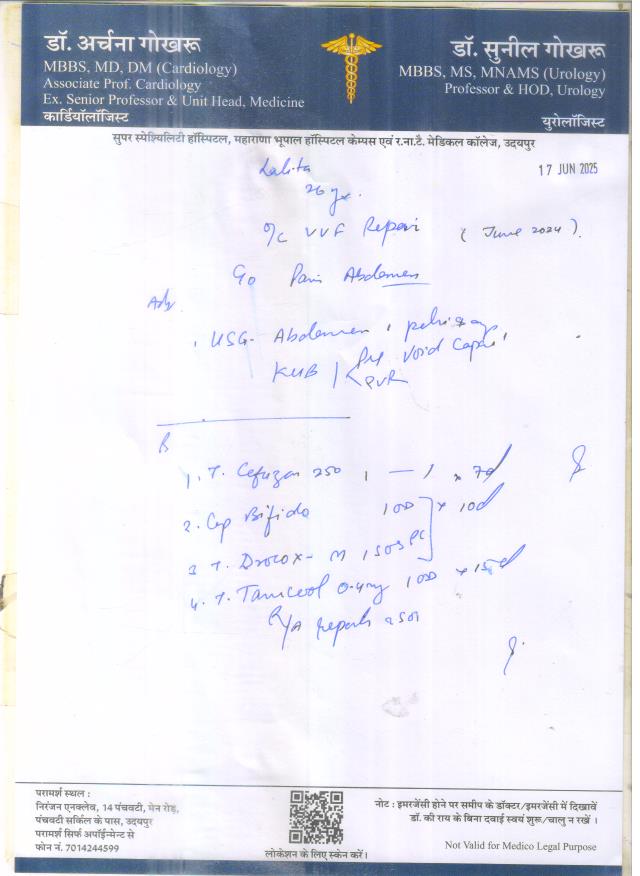 डॉ. अर्चना गोखरू
MBBS, MD, DM (Cardiology)
Associate Prof. Cardiology
Ex. Senior Professor & Unit Head, Medicine
कार्डियॉलॉजिस्ट
डॉ. सुनील गोखरू
MBBS, MS, MNAMS (Urology)
Professor & HOD, Urology
युरोलॉजिस्ट
सुपर स्पेश्यिलिटी हॉस्पिटल, महाराणा भूपाल हॉस्पिटल केम्पस एवं र.ना.टै. मेडिकल कॉलेज, उदयपुर
17 JUN 2025
Lalita
26 yr.
O/c VVF Repair (June 2024).
C/o Pain Abdomen
Adv
USG- Abdomen,
KUB / Pre Void Cap
PVR
1. T. Cefuzan 250 1 — 1 x 7d
2. Cap Bifido 1OD x 10d
3 T. Drocox-M 1SOS PC
4. T. Tamceol 0.4mg 1OD x 15d
R/A reports
परामर्श स्थल :
निरंजन एनक्लेव, 14 पंचवटी, मेन रोड़,
पंचवटी सर्किल के पास, उदयपुर
परामर्श सिर्फ अपॉईन्मेन्ट से
फोन नं. 7014244599
लोकेशन के लिए स्केन करें।
नोट : इमरजेंसी होने पर समीप के डॉक्टर/इमरजेंसी में दिखावें
डॉ. की राय के बिना दवाई स्वयं शुरू/चालु न रखें ।
Not Valid for Medico Legal Purpose